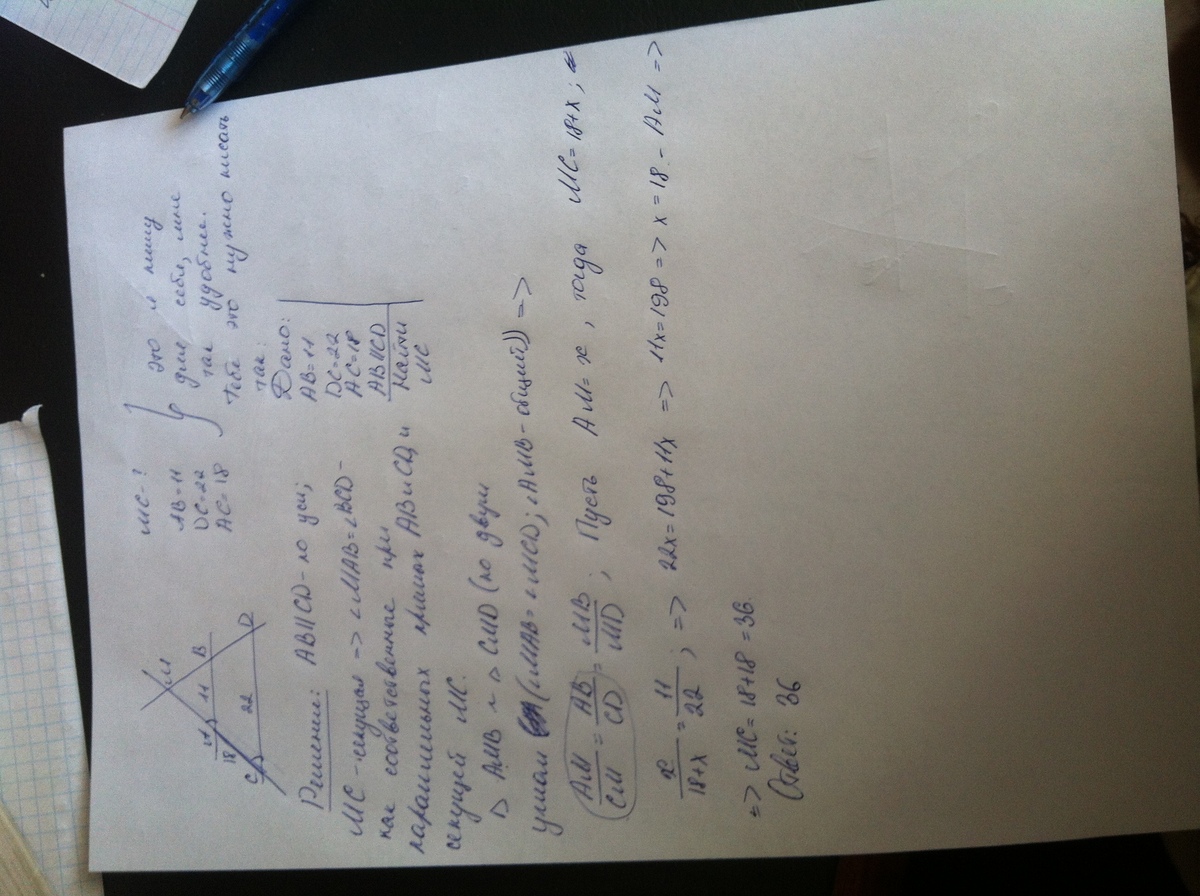 MC-?
AB=11
DC=22
AC=18
Это я пишу
для себя, мне
так удобнее.
Тебе это нужно писать
так:
Дано:
AB=11
DC=22
AC=18
AB||CD
Найти
MC
M
A
11
B
18
22
C
D
Решение: AB||CD - по усл;
MC - секущая => ∠MAB=∠BCD-
как соответственные при
параллельных прямых AB и CD и
секущей MC.
△ AMB ~ △ CMD (по двум
углам (∠MAB=∠MCD; ∠AMB-общий)) =>
AM/CM = AB/CD = MB/MD; Пусть AM=x, тогда MC=18+x;
x/18+x = 11/22; => 22x=198+11x => 11x=198 => x=18 - AM =>
=> MC=18+18=36.
Ответ: 36